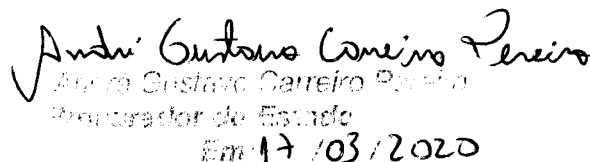 André Gustavo Carreiro Pereira
André Gustavo Carreiro Pereira
Procurador do Estado
Em 17 / 03 / 2020